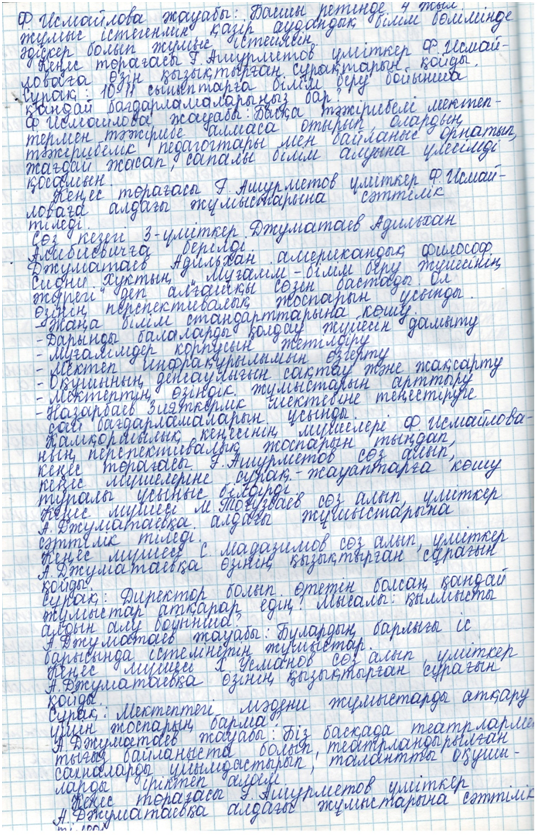 Ф Исмайлова жауабы: Басшы ретінде 4 жыл
жұмыс істегенмін қазір аудандық білім бөлімінде
әдіскер болып жұмыс істеймін.
Кеңес төрағасы Г. Ашурметов үміткер Ф Исмай-
ловаға өзін қызықтырған сұрақтарын қойды.
Сұрақ: 10-11 сыныптарға білім беру бойынша
қандай бағдарламаларыңыз бар
Ф Исмайлова жауабы: Басқа тәжірибелі мектеп-
термен тәжірибе алмаса отырып, олардың
тәжірибелік педагогтары мен байланыс орнатып,
жағдай жасап, сапалы білім алуына үлесімді
қосамын
Кеңес төрағасы Г Ашурметов үміткер Ф Исмай-
ловаға алдағы жұмыстарына сәттілік
тіледі.
Сөз кезегі 3-үміткер Джуматаев Адильхан
берілді
Джуматаев Адильхан американдық философ
Сидни Хуктың "Мұғалім - білім беру жүйесінің
жүрегі" деп алғашқы сөзін бастады Ол
өзінің перспективалық жоспарын ұсынды.
- Жаңа білім стандарттарына көшу
- Дарынды балаларды қолдау жүйесін дамыту
- Мұғалімдер корпусын жетілдіру
- Мектеп инфрақұрылымын өзгерту
- Оқушының денсаулығын сақтау және жақсарту
- Мектептің өзіндік жұмыстарын арттыру
- Назарбаев Зияткерлік мектебіне теңестіруге
сай бағдарламаларын ұсынды
Қамқоршылық кеңесінің мүшелері Ф Исмайлова-
ның перспективалық жоспарын тыңдап,
кеңес төрағасы Г Ашурметов сөз алып,
кеңес мүшелеріне сұрақ-жауаптарға көшу
туралы ұсыныс білдірді
Кеңес мүшесі М сөз алып, үміткер
А. Джуматаевқа алдағы жұмыстарына
сәттілік тіледі.
Кеңес мүшесі С Мадазимов сөз алып, үміткер
А. Джуматаевқа өзінің қызықтырған сұрағын
қойды
Сұрақ: Директор болып өтетін болсаң қандай
жұмыстар атқарар едің Мысалы: қылмысты
алдын алу бойынша?
А. Джуматаев жауабы: Бұлардың барлығы іс
барысында істелінетін жұмыстар.
Кеңес мүшесі Х Усманов сөз алып үміткер
А. Джуматаевқа өзінің қызықтырған сұрағын
қойды.
Сұрақ: Мектептегі мәдени жұмыстарды атқару
үшін жоспарың бар ма?
А. Джуматаев жауабы: Біз басқада театрлармен
тығыз байланыста болып, театрландырылған
сахналарды ұйымдастырып, талантты оқушы-
ларды іріктеп алам
Кеңес төрағасы Г Ашурметов үміткер
А. Джуматаевқа алдағы жұмыстарына сәттілік